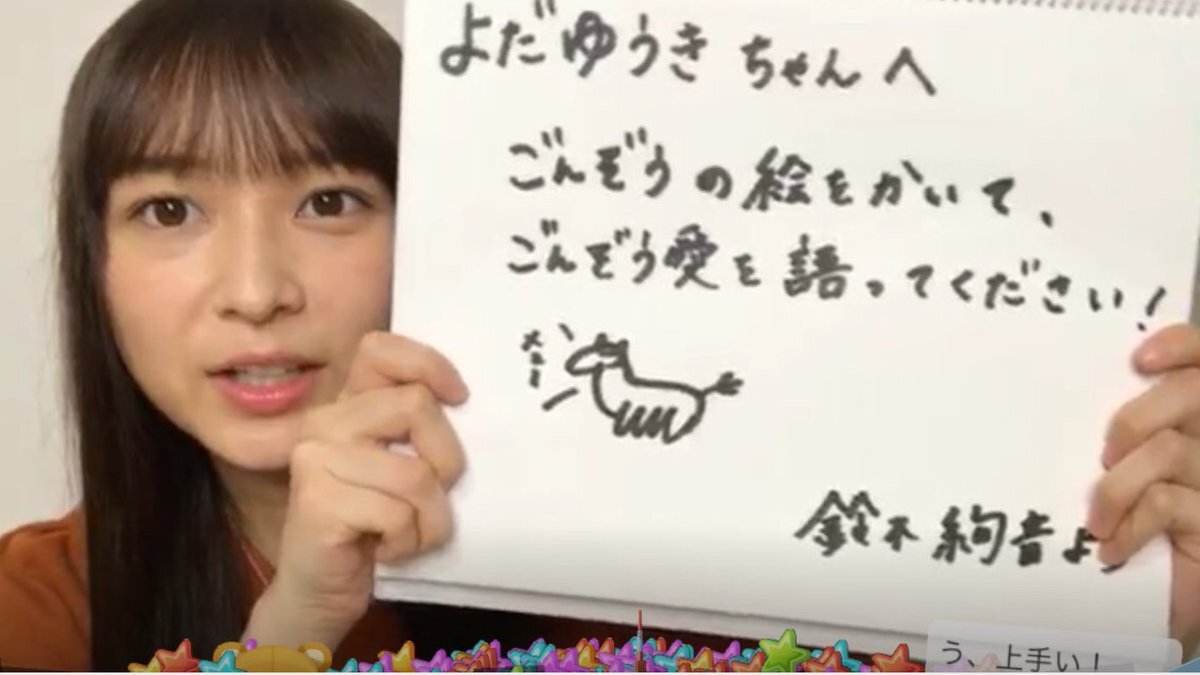 よだゆうきちゃんへ
ごんぞうの絵をかいて、
ごんぞう愛を語ってください!
メェー
鈴木絢音より
う、上手い!